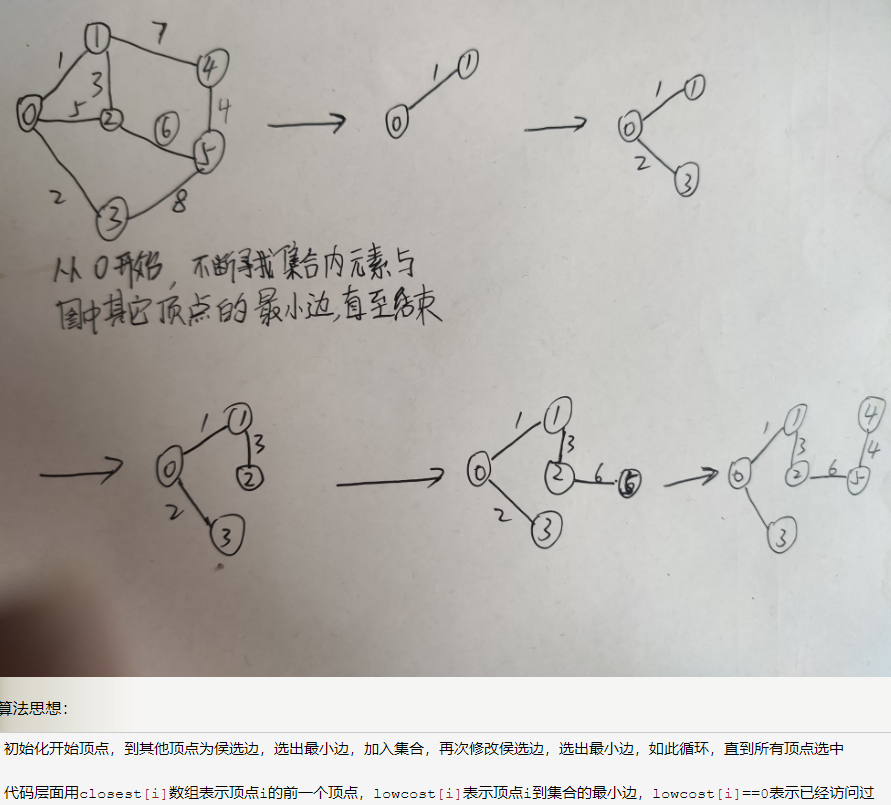 1 7 4
1 3 4
0 5 2 6 5
2 3 8
1 1
0
1 1
0
2 3
从0开始，不断寻找集合内元素与
图中其它顶点的最小边,直至结束
1 1 3
0 2
2 3
1 1 3
0 2 6 5
2 3
1 1 3 4 4
0 2 6 5
3
算法思想：
初始化开始顶点，到其他顶点为侯选边，选出最小边，加入集合，再次修改侯选边，选出最小边，如此循环，直到所有顶点选中
代码层面用closest[i]数组表示顶点i的前一个顶点，lowcost[i]表示顶点i到集合的最小边，lowcost[i]==0表示已经访问过